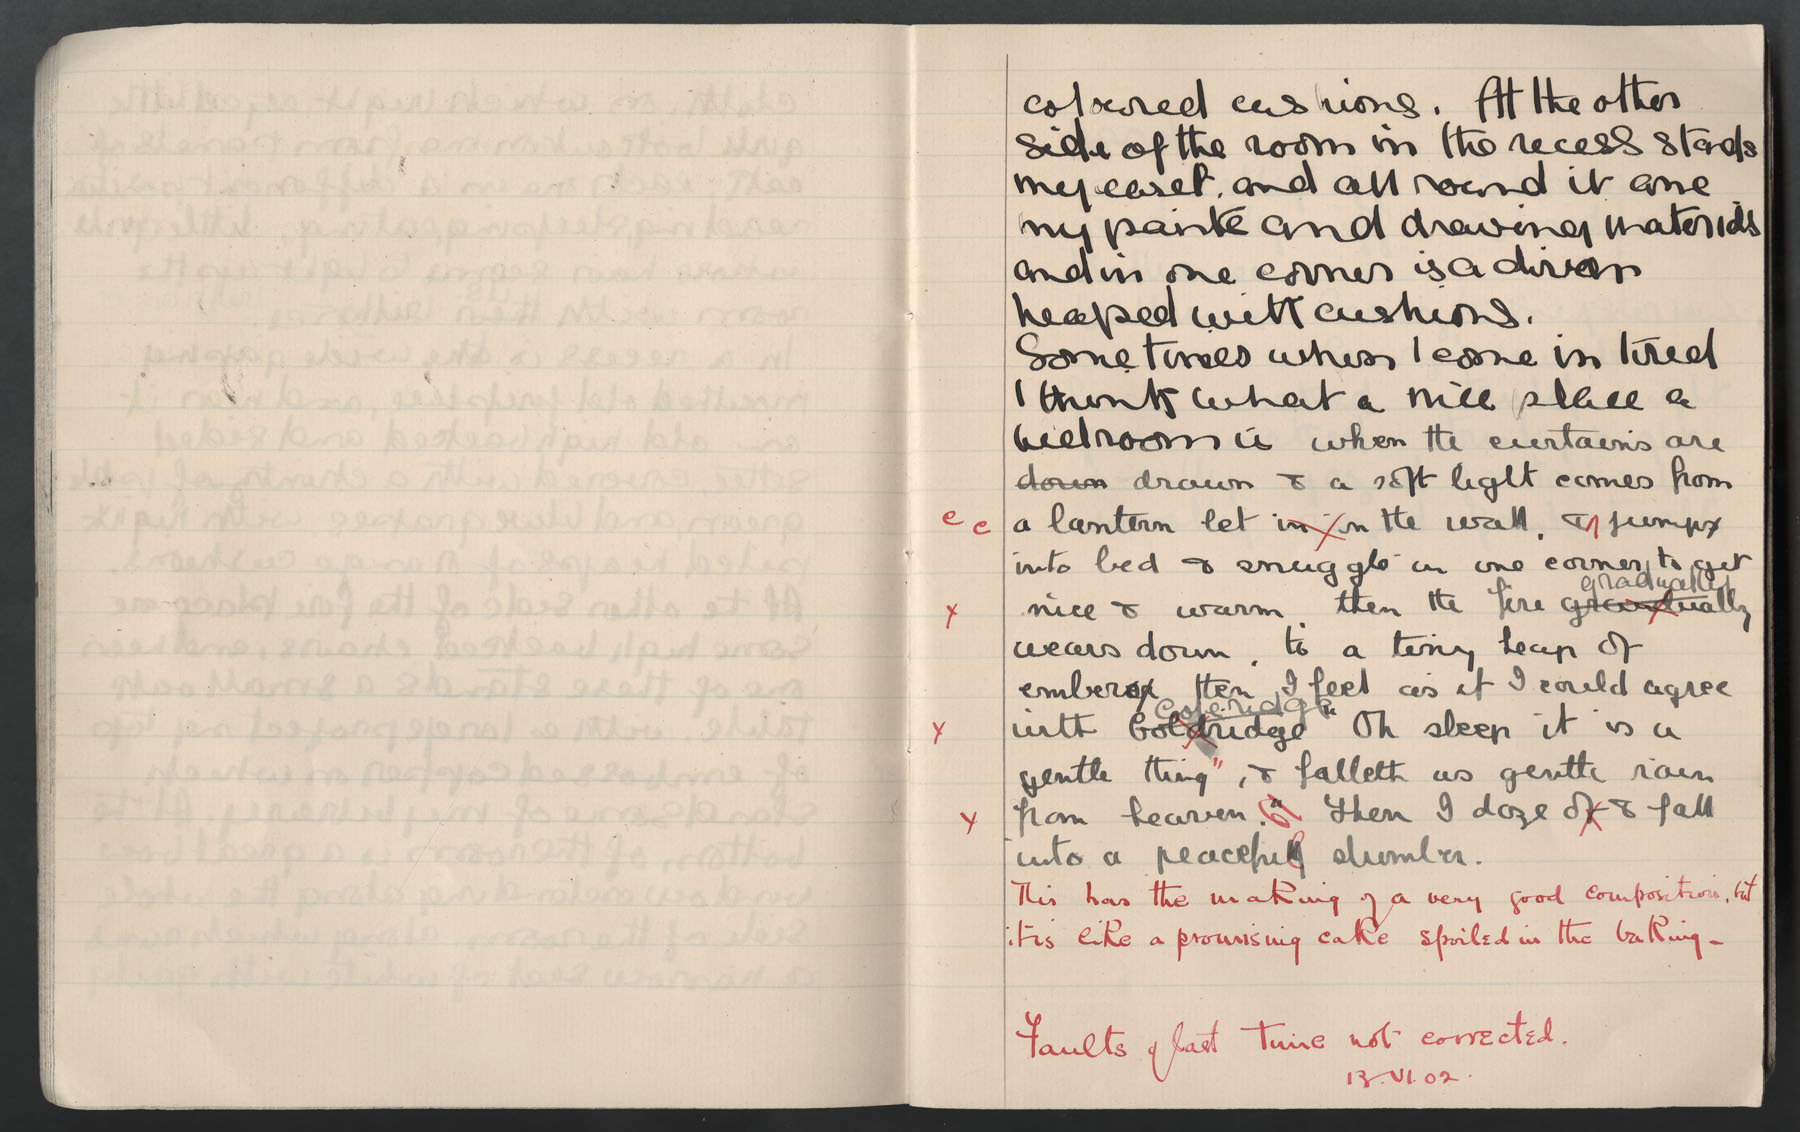 coloured cushions. At the other
side of the room in the recess stands
my easel, and all round it are
my paints and drawing materials
and in one corner is a divan
heaped with cushions.
Sometimes when I come in tired
I think what a nice place a
bedroom is when the curtains are
down drawn & a soft light comes from
e c a lantern let in in the wall, & I jump
into bed & snuggle in one corner to get
gradually
x nice & warm, then the fire grauntually
wears down, to a tiny heap of
embers, then I feel as if I could agree
Coleridge
x with Goldridge "Oh sleep it is a
gentle thing", & falleth as gentle rain
x from heaven." Then I doze of & fall
into a peaceful slumber.
This has the making of a very good composition, but
it is like a promising cake spoiled in the baking –
Faults of last time not corrected.
13.VI.02.